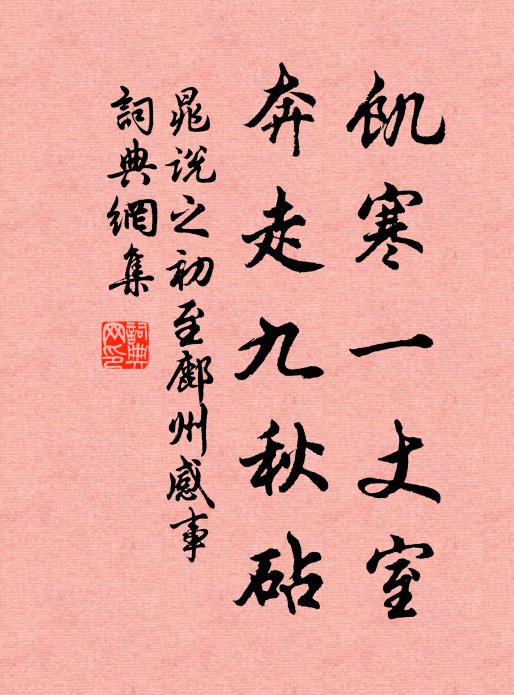 飢寒一丈室
奔走九秋砧
晁說之初至鄜州感事
詞典網集
詞典網印